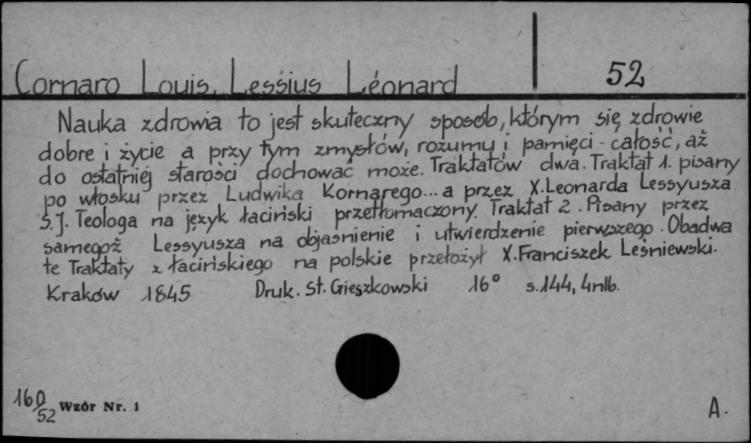 Cornaro Louis, Lessius Léonard 52
Nauka zdrowia to jest skuteczny sposób, którym się zdrowie
dobre i życie a przy tym zmysłów, rozumu i pamięci - całość, aż
do ostatniej starości dochować może. Traktatów dwa. Traktat 1. pisany
po włosku przez Ludwika Kornarego... a przez X. Leonarda Lessyusza
S.J. Teologa na język łaciński przetłumaczony. Traktat 2. Pisany przez
samegoż Lessyusza na objasnienie i utwierdzenie pierwszego. Obadwa
te Traktaty z łacińskiego na polskie przełożył X. Franciszek Leśniewski.
Kraków 1845 Druk. St. Gieszkowski 16° s. 144, 4nlb.
160/52 Wzór Nr. 1 A.